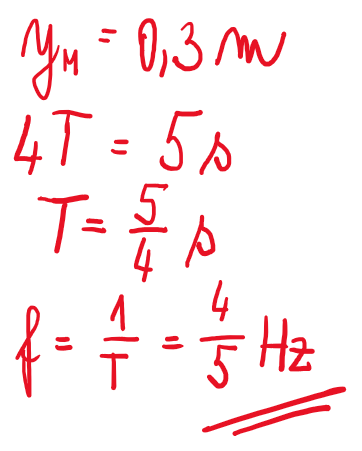 y_M = 0,3 m
4T = 5 s
T = 5/4 s
f = 1/T = 4/5 Hz